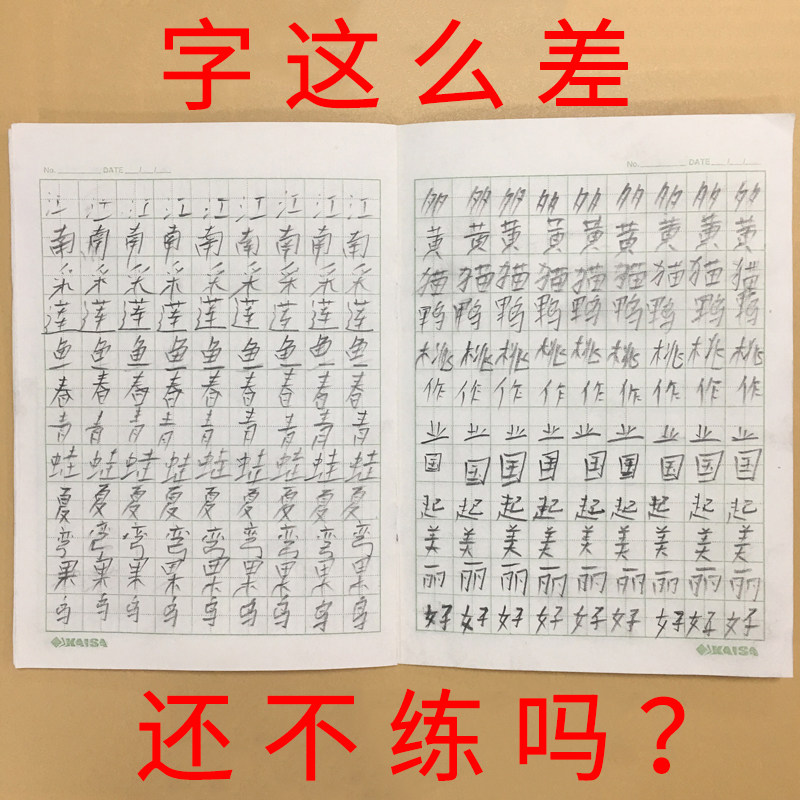 字这么差
No. DATE / /
江江江江江江江江江
南南南南南南南南南
采采采采采采采采采
莲莲莲莲莲莲莲莲莲
鱼鱼鱼鱼鱼鱼鱼鱼鱼
春春春春春春春春春
青青青青青青青青青
蛙蛙蛙蛙蛙蛙蛙蛙蛙
夏夏夏夏夏夏夏夏夏
弯弯弯弯弯弯弯弯弯
果果果果果果果果果
KAISA
No. DATE / /
黄黄黄黄黄黄黄黄黄
猫猫猫猫猫猫猫猫猫
鸭鸭鸭鸭鸭鸭鸭鸭鸭
桃桃桃桃桃桃桃桃桃
作作作作作作作作作
业业业业业业业业业
国国国国国国国国国
起起起起起起起起起
美美美美美美美美美
丽丽丽丽丽丽丽丽丽
好好好好好好好好好
KAISA
还不练吗？